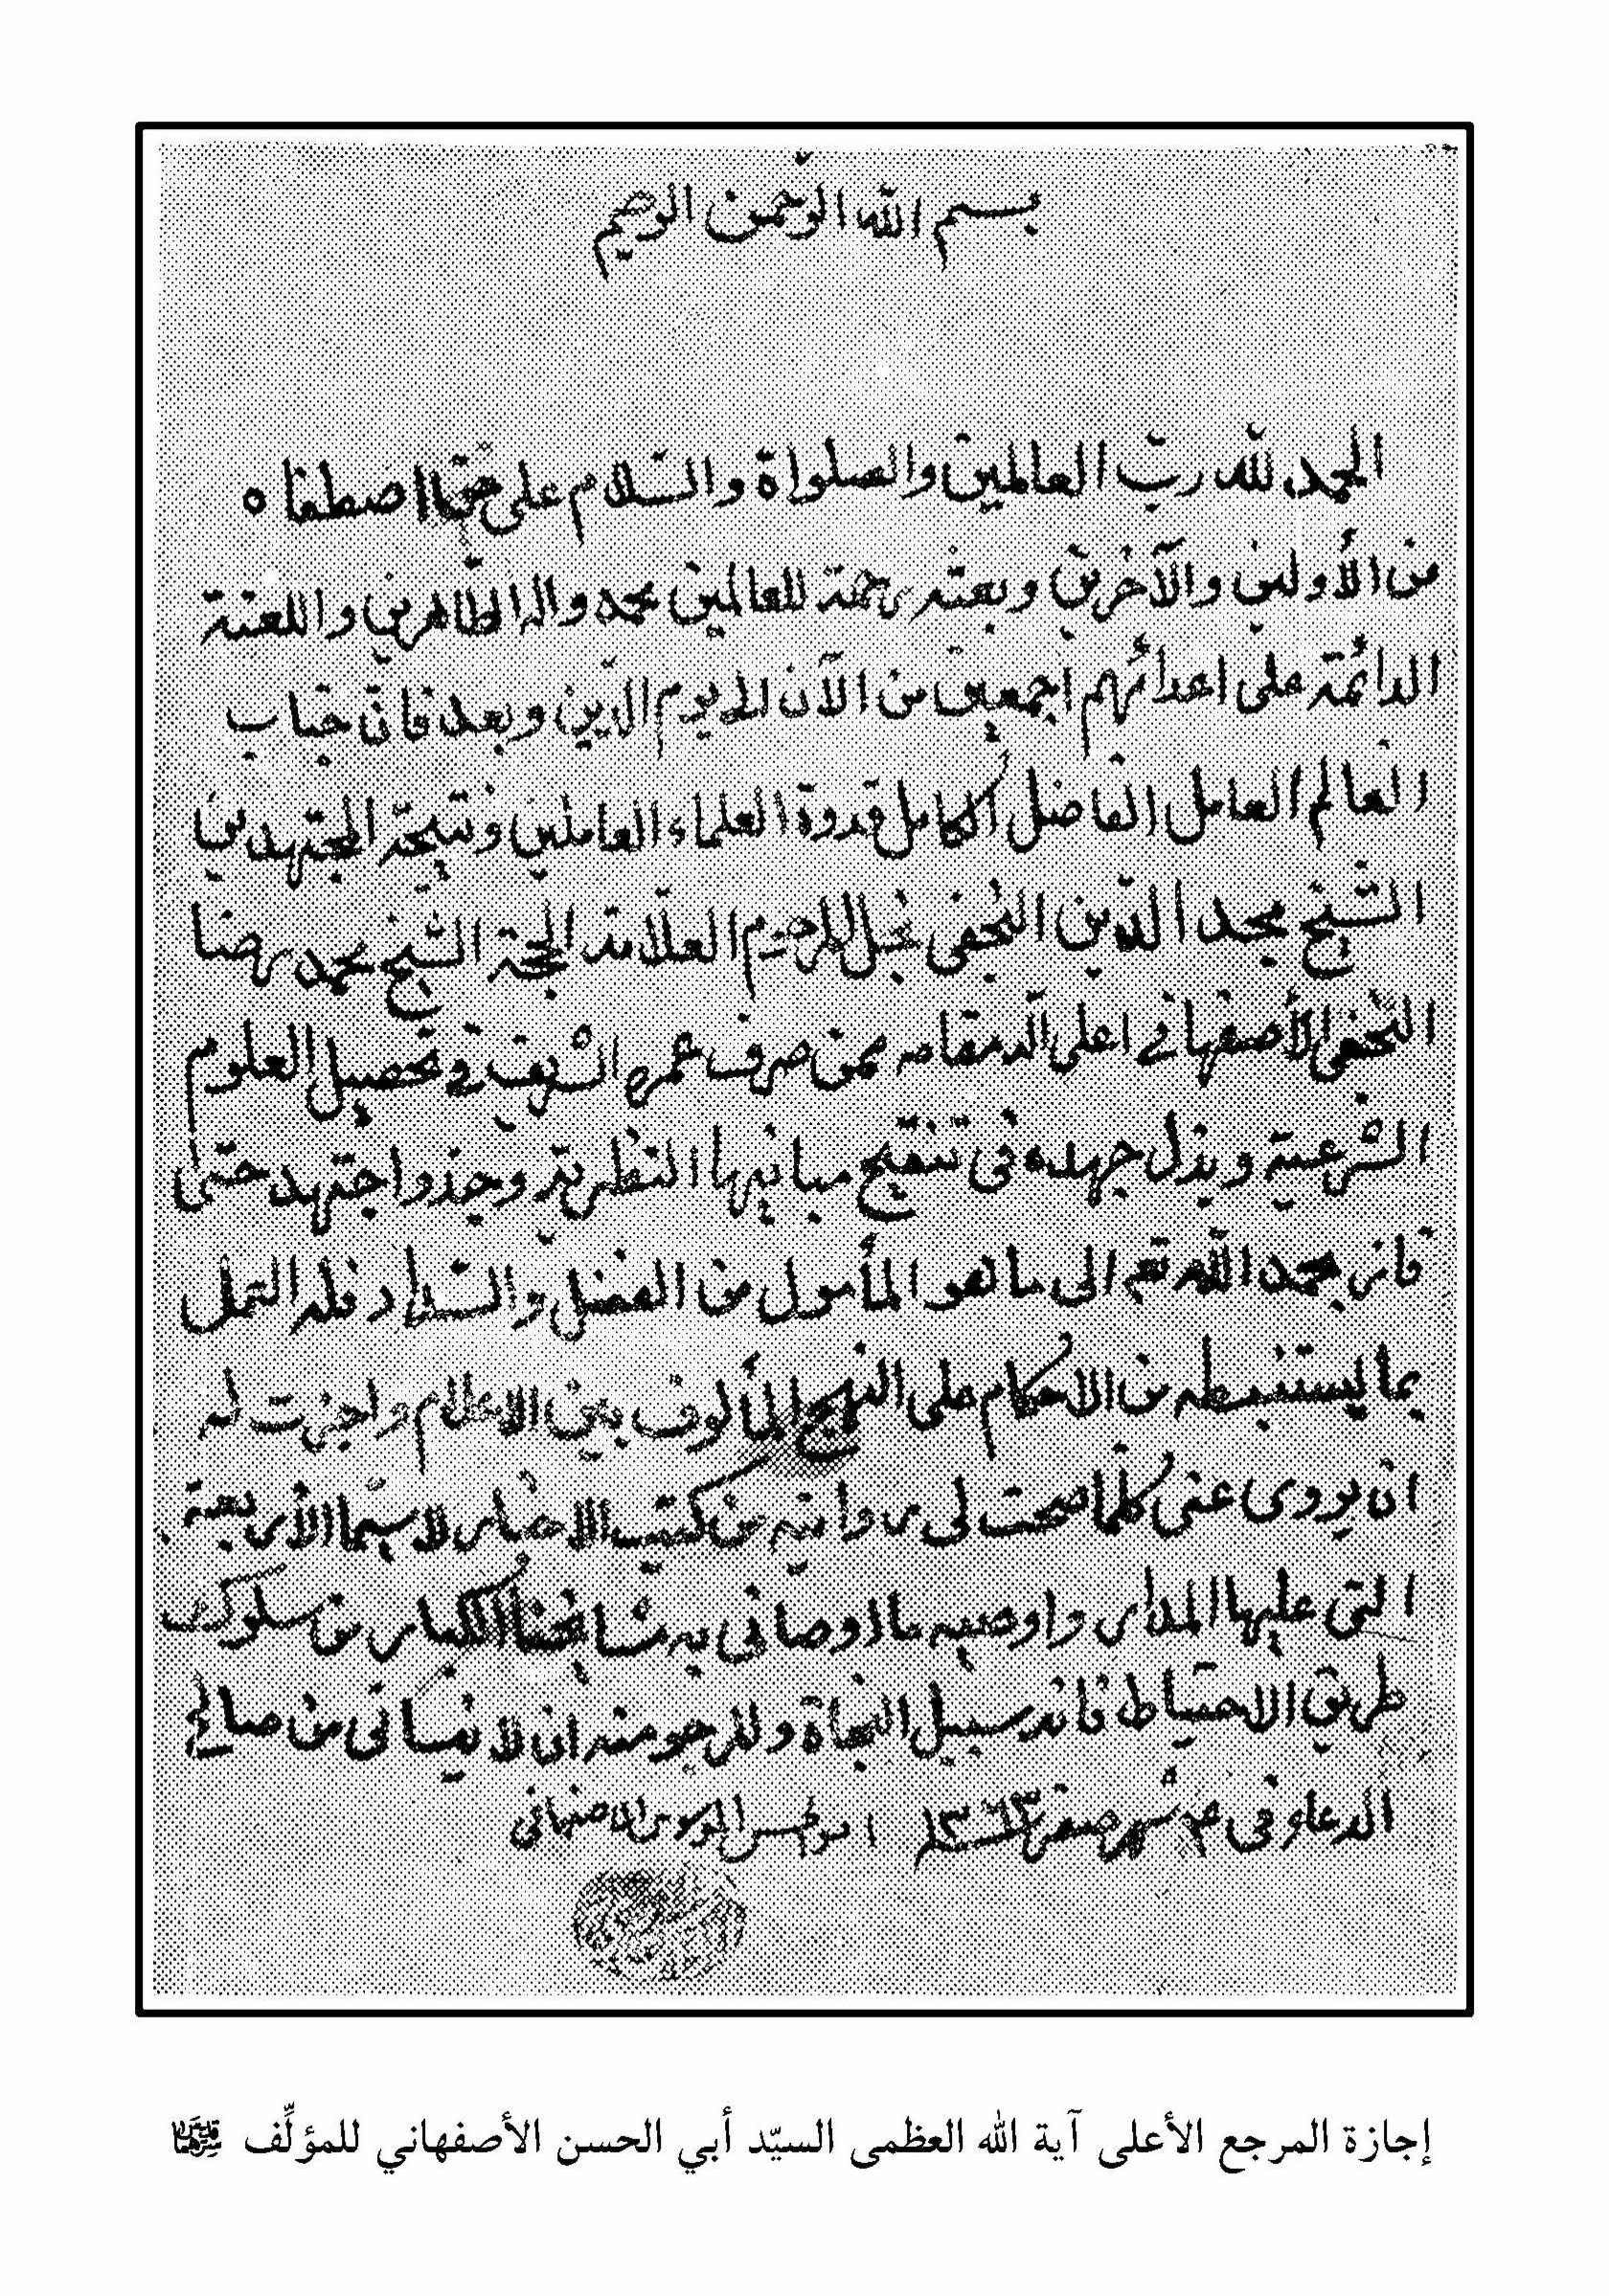 بسم الله الرحمن الرحيم
الحمد لله رب العالمين والصلواة والسّلام على من اصطفاه
من الأولين والآخرين وبعثه رحمة للعالمين محمد واله الطاهرين واللعنة
الدائمة على اعدائهم اجمعين من الآن الى يوم الدّين وبعد فانّ جناب
العالم العامل الفاضل الكامل قدوة العلماء العاملين ونتيجة المجتهدين
الشّيخ مجد الدّين النجفى نجل المرحوم العلّامة الحجة الشّيخ محمد رضا
النّجفى الأصفهاني اعلى الله مقامه ممن صرف عمره الشّريف في تحصيل العلوم
الشّرعية وبذل جهده فى تنقيح مبانيها النظرية وجدّ واجتهد حتى
فاز بحمد الله تعم الى ما هو المأمول من الفضل والسّداد فله العمل
بما يستنبطه من الاحكام على النهج المألوف بين الاعلام واجزت له
ان يروى عنى كلما صحت لى روايته من كتب الاخبار لا سيما الأربعة
التى عليها المدار واوصيه بما اوصانى به مشايخنا الكبار من سلوك
طريق الاحتياط فانه سبيل النجاة والمرجو منه ان لا ينسانى من صالح
الدعاء وفى شهر صفر ١٣٦٣ ابو الحسن الموسوى الاصفهانى
إجازة المرجع الأعلى آية الله العظمى السيّد أبي الحسن الأصفهاني للمؤلِّف قدّس سرّهما